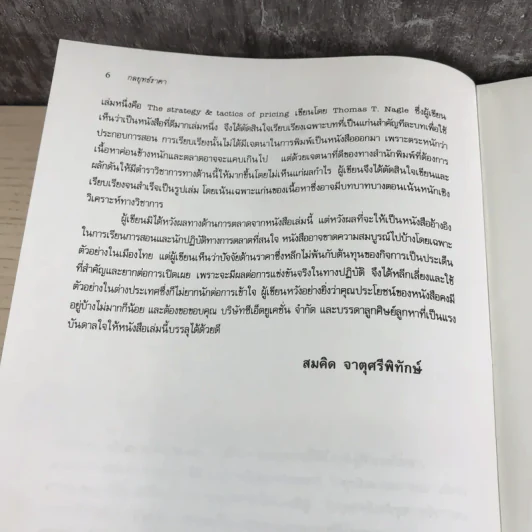 6 กลยุทธ์ราคา
เล่มหนึ่งคือ The strategy & tactics of pricing เขียนโดย Thomas T. Nagle ซึ่งผู้เขียน
เห็นว่าเป็นหนังสือที่ดีมากเล่มหนึ่ง จึงได้ตัดสินใจเรียบเรียงเฉพาะบทที่เป็นแก่นสำคัญทีละบทเพื่อใช้
ประกอบการสอน การเรียบเรียงนั้นไม่ได้มีเจตนาในการพิมพ์เป็นหนังสือออกมา เพราะตระหนักว่า
เนื้อหาค่อนข้างหนักและตลาดอาจจะแคบเกินไป แต่ด้วยเจตนาที่ดีของทางสำนักพิมพ์ที่ต้องการ
ผลักดันให้มีตำราวิชาการทางด้านนี้ให้มากขึ้นโดยไม่เห็นแก่ผลกำไร ผู้เขียนจึงได้ตัดสินใจเขียนและ
เรียบเรียงจนสำเร็จเป็นรูปเล่ม โดยเน้นเฉพาะแก่นของเนื้อหาซึ่งอาจมีบทบาทบางตอนเน้นหนักเชิง
วิเคราะห์ทางวิชาการ
ผู้เขียนมิได้หวังผลทางด้านการตลาดจากหนังสือเล่มนี้ แต่หวังผลที่จะให้เป็นหนังสืออ้างอิง
ในการเรียนการสอนและนักปฏิบัติทางการตลาดที่สนใจ หนังสืออาจขาดความสมบูรณ์ไปบ้างโดยเฉพาะ
ตัวอย่างในเมืองไทย แต่ผู้เขียนเห็นว่าปัจจัยด้านราคาซึ่งหลีกไม่พ้นกับต้นทุนของกิจการเป็นประเด็น
ที่สำคัญและยากต่อการเปิดเผย เพราะจะมีผลต่อการแข่งขันจริงในทางปฏิบัติ จึงได้หลีกเลี่ยงและใช้
ตัวอย่างในต่างประเทศซึ่งก็ไม่ยากนักต่อการเข้าใจ ผู้เขียนหวังอย่างยิ่งว่าคุณประโยชน์ของหนังสือคงมี
อยู่บ้างไม่มากก็น้อย และต้องขอขอบคุณ บริษัทซีเอ็ดยูเคชั่น จำกัด และบรรดาลูกศิษย์ลูกหาที่เป็นแรง
บันดาลใจให้หนังสือเล่มนี้บรรลุได้ด้วยดี
สมคิด จาตุศรีพิทักษ์